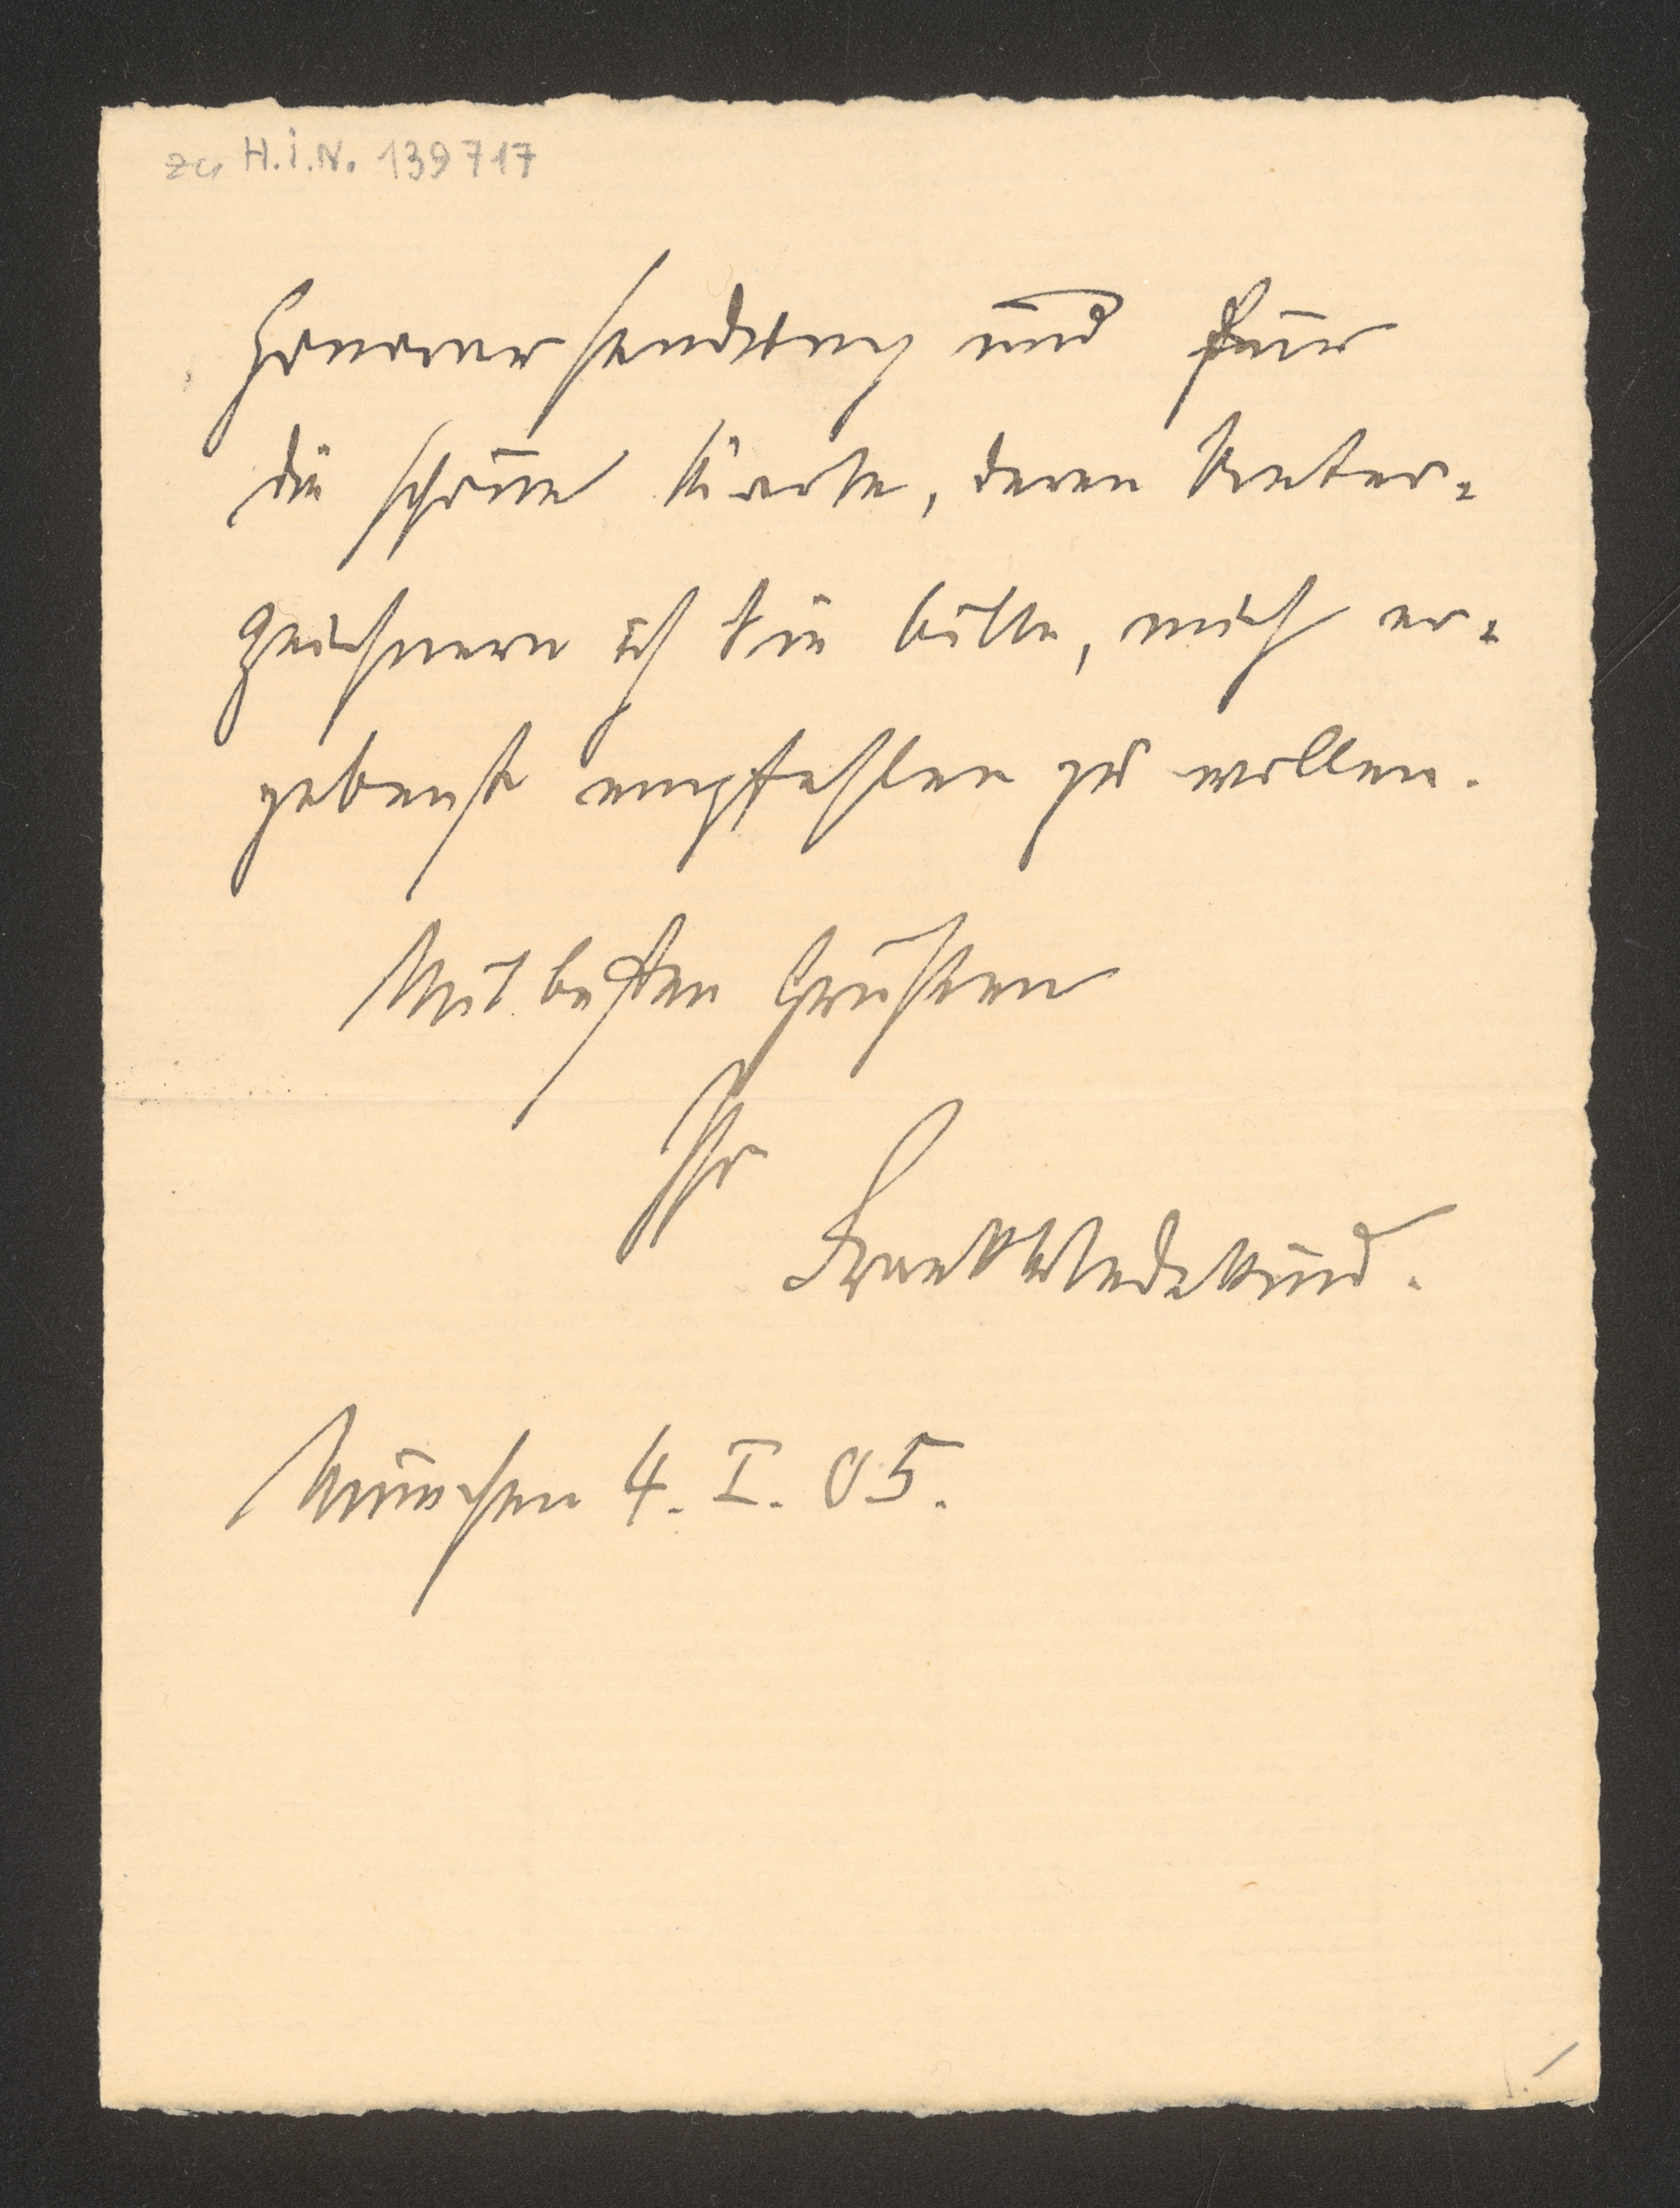 zu H.I.N. 139717
Honorarsendung und für
die schöne Karte, deren Unter-
zeichnern ich Sie bitte, mich er-
gebenst empfehlen zu wollen.
Mit besten Grüßen
Ihr
Frank Wedekind.
München 4. I. 05.